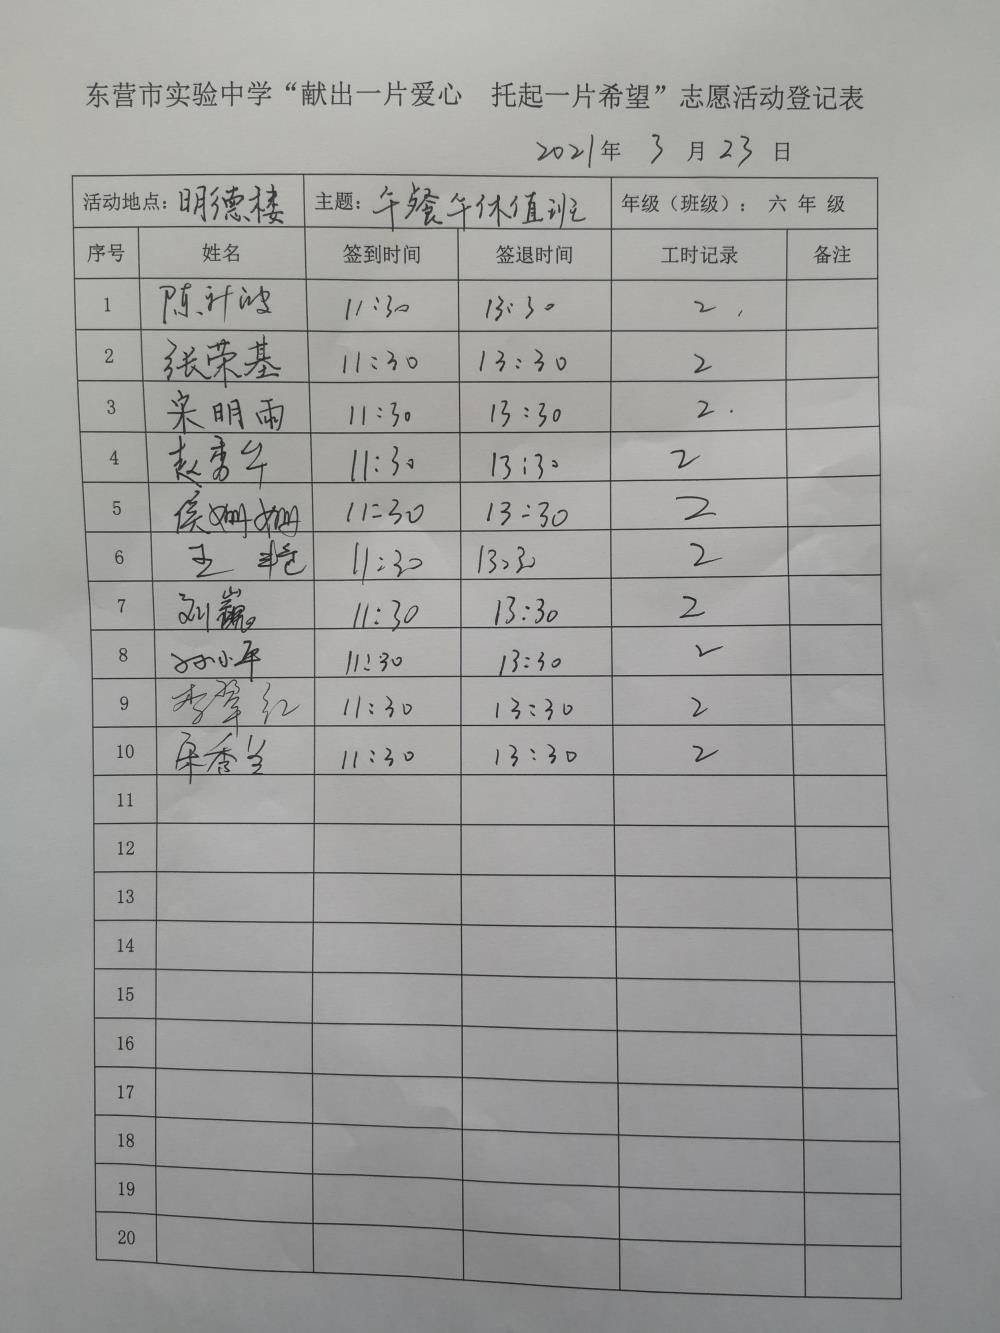 东营市实验中学“献出一片爱心 托起一片希望”志愿活动登记表
2021年 3 月 23 日
活动地点：明德楼 主题：午餐午休值班 年级（班级）：六 年 级
序号 姓名 签到时间 签退时间 工时记录 备注
1 陈 11:30 13:30 2
2 张荣基 11:30 13:30 2
3 宋明雨 11:30 13:30 2
4 赵秀 11:30 13:30 2
5 侯姗姗 11:30 13:30 2
6 王 11:30 13:30 2
7 刘巍 11:30 13:30 2
8 孙小平 11:30 13:30 2
9 李翠红 11:30 13:30 2
10 秀兰 11:30 13:30 2
11
12
13
14
15
16
17
18
19
20